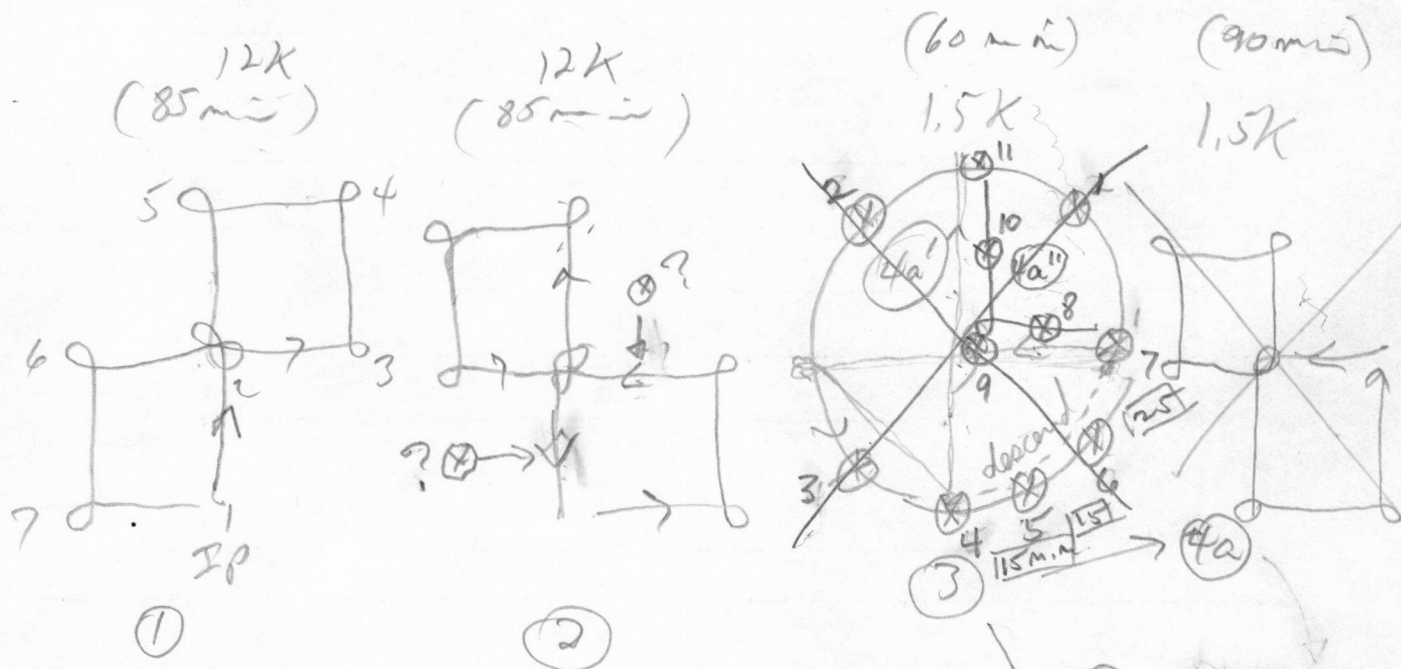 12K
(85 min)
5
4
6
2
3
7
1
IP
①
12K
(85 min)
?
?
②
(60 min)
1.5K
11
2
1
4a'
10
4a"
8
9
7
descend
25
3
4
5
6
15 min
15
③
(90 min)
1.5K
4a